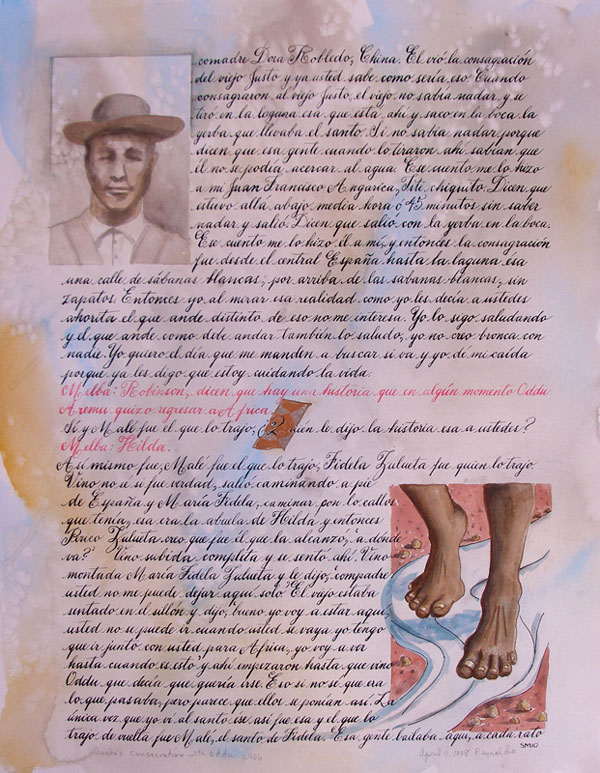 comadre Dora Robledo, China. El vió la consagración
del viejo Justo y ya usted sabe como sería eso. Cuando
consagraron al viejo Justo, el viejo no sabía nadar y se
tiro en la laguna esa que esta ahi y saco en la boca la
yerba que llevaba el santo. Si no sabía nadar porque
dicen que esa gente cuando lo tiraron ahi sabían que
él no se podía acercar al agua. Ese cuento me lo hizo
a mi Juan Francisco Angarica, Titi chiquito. Dicen que
estuvo allá abajo media hora ó 45 minutos sin saber
nadar y salió. Dicen que salió con la yerba en la boca.
Ese cuento me lo hizo él a mí, y entonces la consagración
fue desde el central España hasta la laguna esa
una calle de sábanas blancas, por arriba de las sabanas blancas, sin
zapatos. Entonces yo al mirar esa realidad como yo les decía a ustedes
ahorita el que ande distinto de eso no me interesa. Yo lo sigo saludando
y el que ande como debe andar también lo saludo, yo no creo bronca con
nadie. Yo quiero el día que me manden a buscar si va y yo de mi caída
porque ya les digo que estoy cuidando la vida.
Melba: Robinson, dicen que hay una historia que en algún momento Oddu
Aremu quizo regresar a Africa.
Si y Malé fue el que lo trajo, ¿Quién le dijo la historia esa a ustedes?
Melba: Hilda.
Asi mismo fue, Malé fue el que lo trajo, Fidela Zulueta fue quien lo trajo.
Vino no sé si fue verdad, salió caminando a pie
de España y María Fidela, caminar pon lo callos
que tenía, esa era la abuela de Hilda y entonces
Perico Zulueta creo que fue el que la alcanzo, a dónde
va? Vino subida completa y se sentó ahi. Vino
montada María Fidela Zulueta y le dijo, compadre
usted no me puede dejar aquí solo. El viejo estaba
sentado en el sillón y dijo, bueno yo voy a estar aquí,
usted no se puede ir cuando usted se vaya yo tengo
que ir junto con usted para Africa, yo voy a ver
hasta cuando es esto y ahi empezaron hasta que vino
Oddu que decía que quería irse. Eso si no sé que era
lo que pasaba, pero parece que ellos se ponían así. La
única vez que yo vi al santo ese asi fue esa y el que lo
trajo de vuelta fue Malé, el santo de Fidela. Esa gente bailaba aquí, a cada rato
SM10
Consecration with Oddu
April 11, 2008